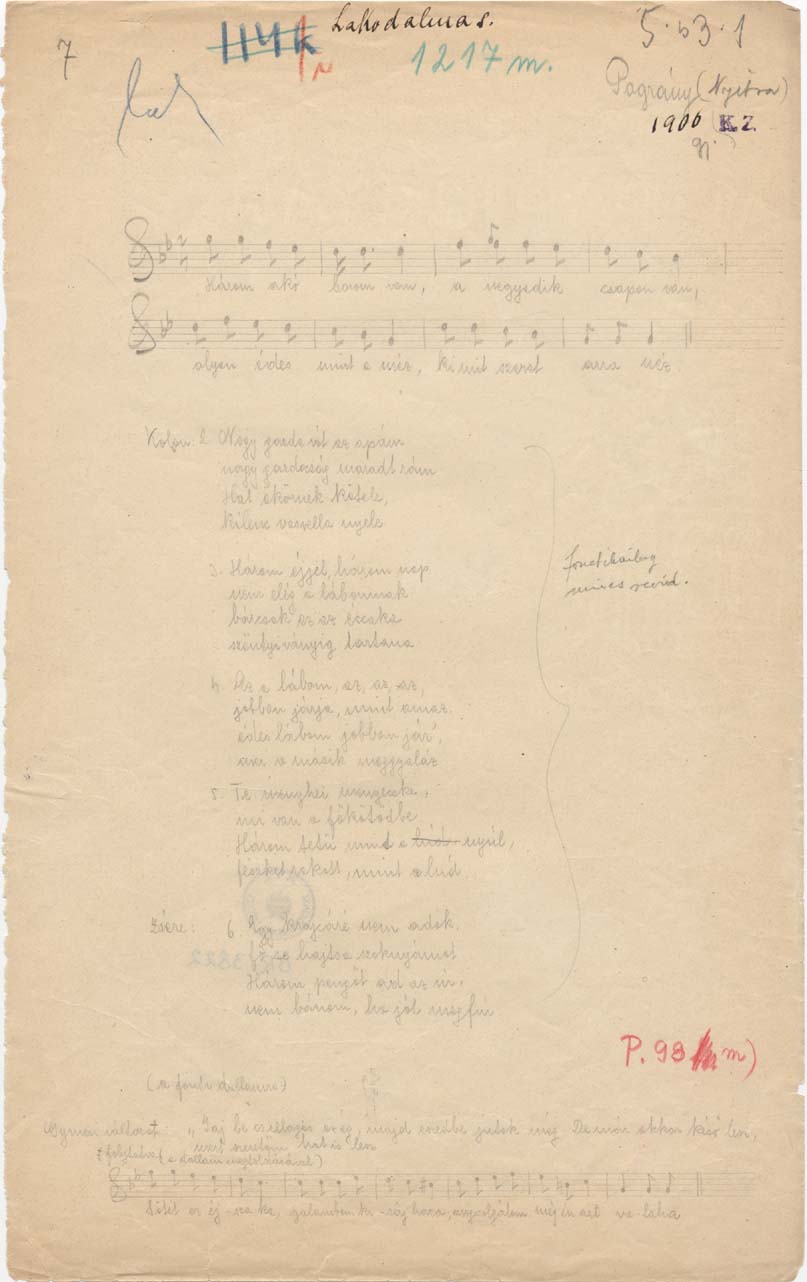 7
114k
Lakodalmas.
1217 m.
5.b3.1
Pográny (Nyitra)
1906 K.Z.
gj.
Három akó borom van, a negyedik csapon van,
olyan édes mint a méz, ki mit szeret arra néz.
Kolon: 2. Nagy gazda vót az apám
nagy gazdaság maradt rám
Hat ökörnek kötele,
kilenc vasvella nyele
3. Három éjjel, három nap
nem elég a lábomnak
bárcsak ez az éccaka
szentiványig tartana
4. Ez a lábom, ez, az, ez,
jobban járja, mint amaz.
édes lábom jobban jár',
mer a másik meggyaláz
5. Te menyhei menyecske,
mi van a fökötődbe
Három tetű mint a lúd nyúl,
fészket rakott, mint a lúd.
fonetikailag
nincs revid.
Zsére: 6. Egy krajcáré nem adok
hajtsa szoknyámat
Három pengőt ad az úr,
nem bánom, ha jól megfúr
P. 98 m)
(a fönti dallamra)
Gymán változat: „Jaj be csillagos az ég, majd eszébe jutok még. De már akkor késő lesz,
mert szeretőm hat is lesz
s folytatva (a dallam megtoldásával)
Sötét az éj-szaka, galambom kísérj haza, meg én azt va-laha